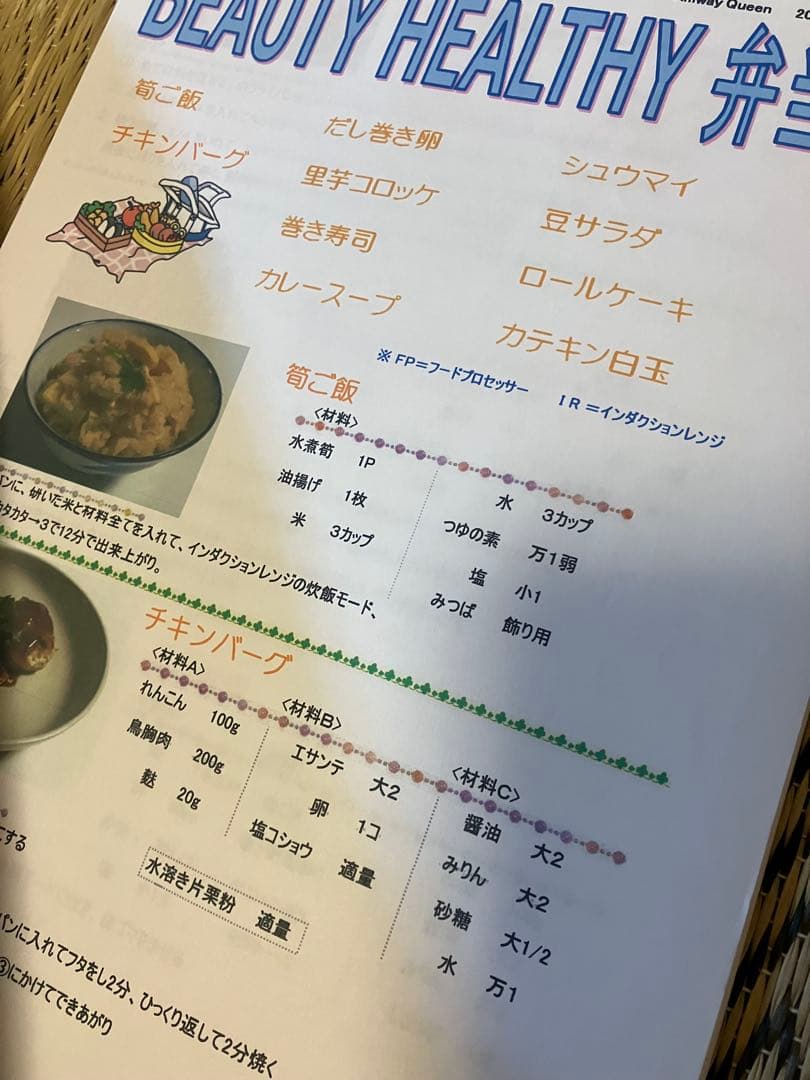 Amway Queen 20
BEAUTY HEALTHY 弁当
筍ご飯 だし巻き卵 シュウマイ
チキンバーグ 里芋コロッケ 豆サラダ
巻き寿司 ロールケーキ
カレースープ カテキン白玉
※FP=フードプロセッサー IR=インダクションレンジ
筍ご飯
〈材料〉
水煮筍 1P 水 3カップ
油揚げ 1枚 つゆの素 万1弱
米 3カップ 塩 小1
みつば 飾り用
パンに、研いた米と材料全てを入れて、インダクションレンジの炊飯モード、
カタカタ→3で12分で出来上がり。
チキンバーグ
〈材料A〉
れんこん 100g
鳥胸肉 200g
麩 20g
〈材料B〉
エサンテ 大2
卵 1コ
塩コショウ 適量
水溶き片栗粉 適量
〈材料C〉
醤油 大2
みりん 大2
砂糖 大1/2
水 万1
にする
パンに入れてフタをし2分、ひっくり返して2分焼く
③にかけてできあがり